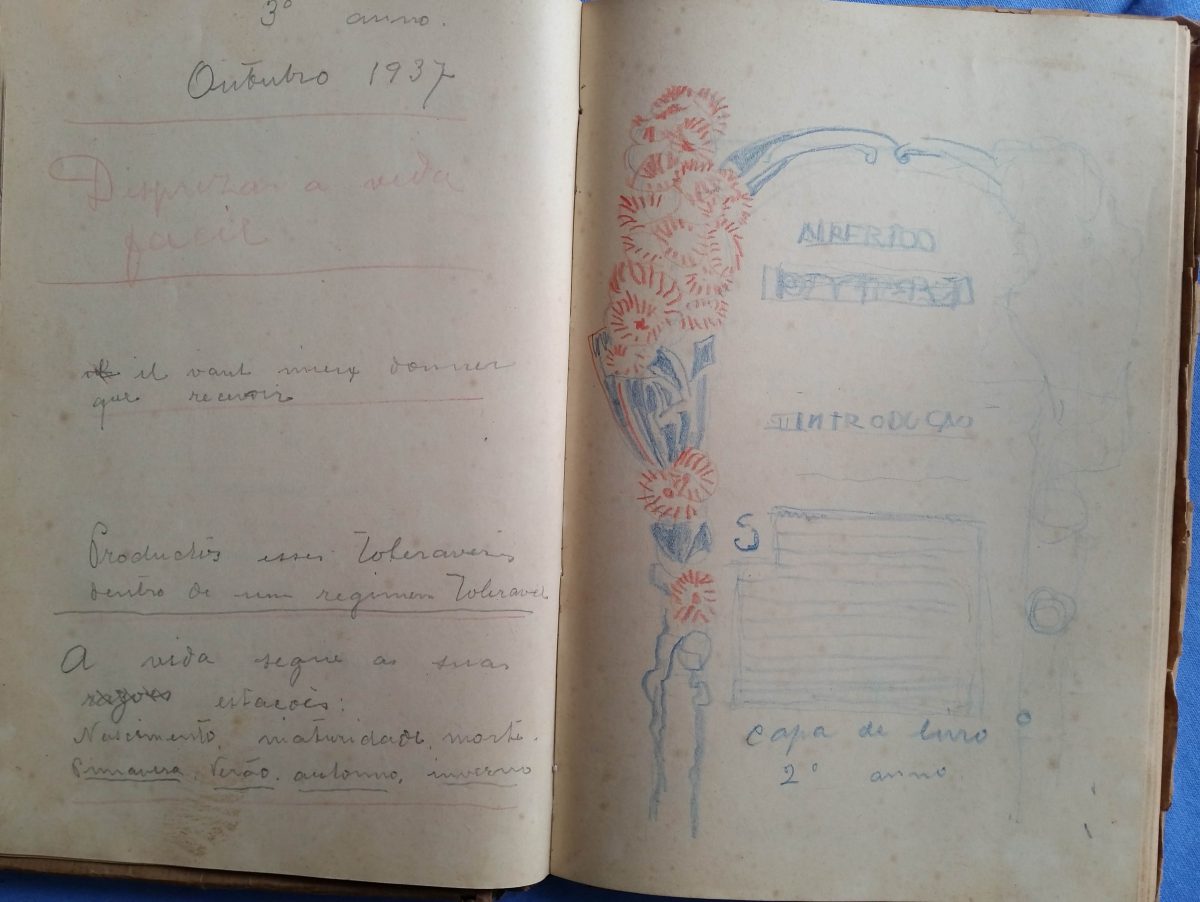 3º anno.
Outubro 1937
Desprezar a vida
facil
il vaut mieux donner
que recevoir
Productos esses toleraveis
dentro de um regimen toleravel
A vida segue as suas
estacões:
Nascimento, maturidade, morte.
Primavera, Verão, autonno, inverno
INTRODUCÇÃO
S
capa de livro
2º anno